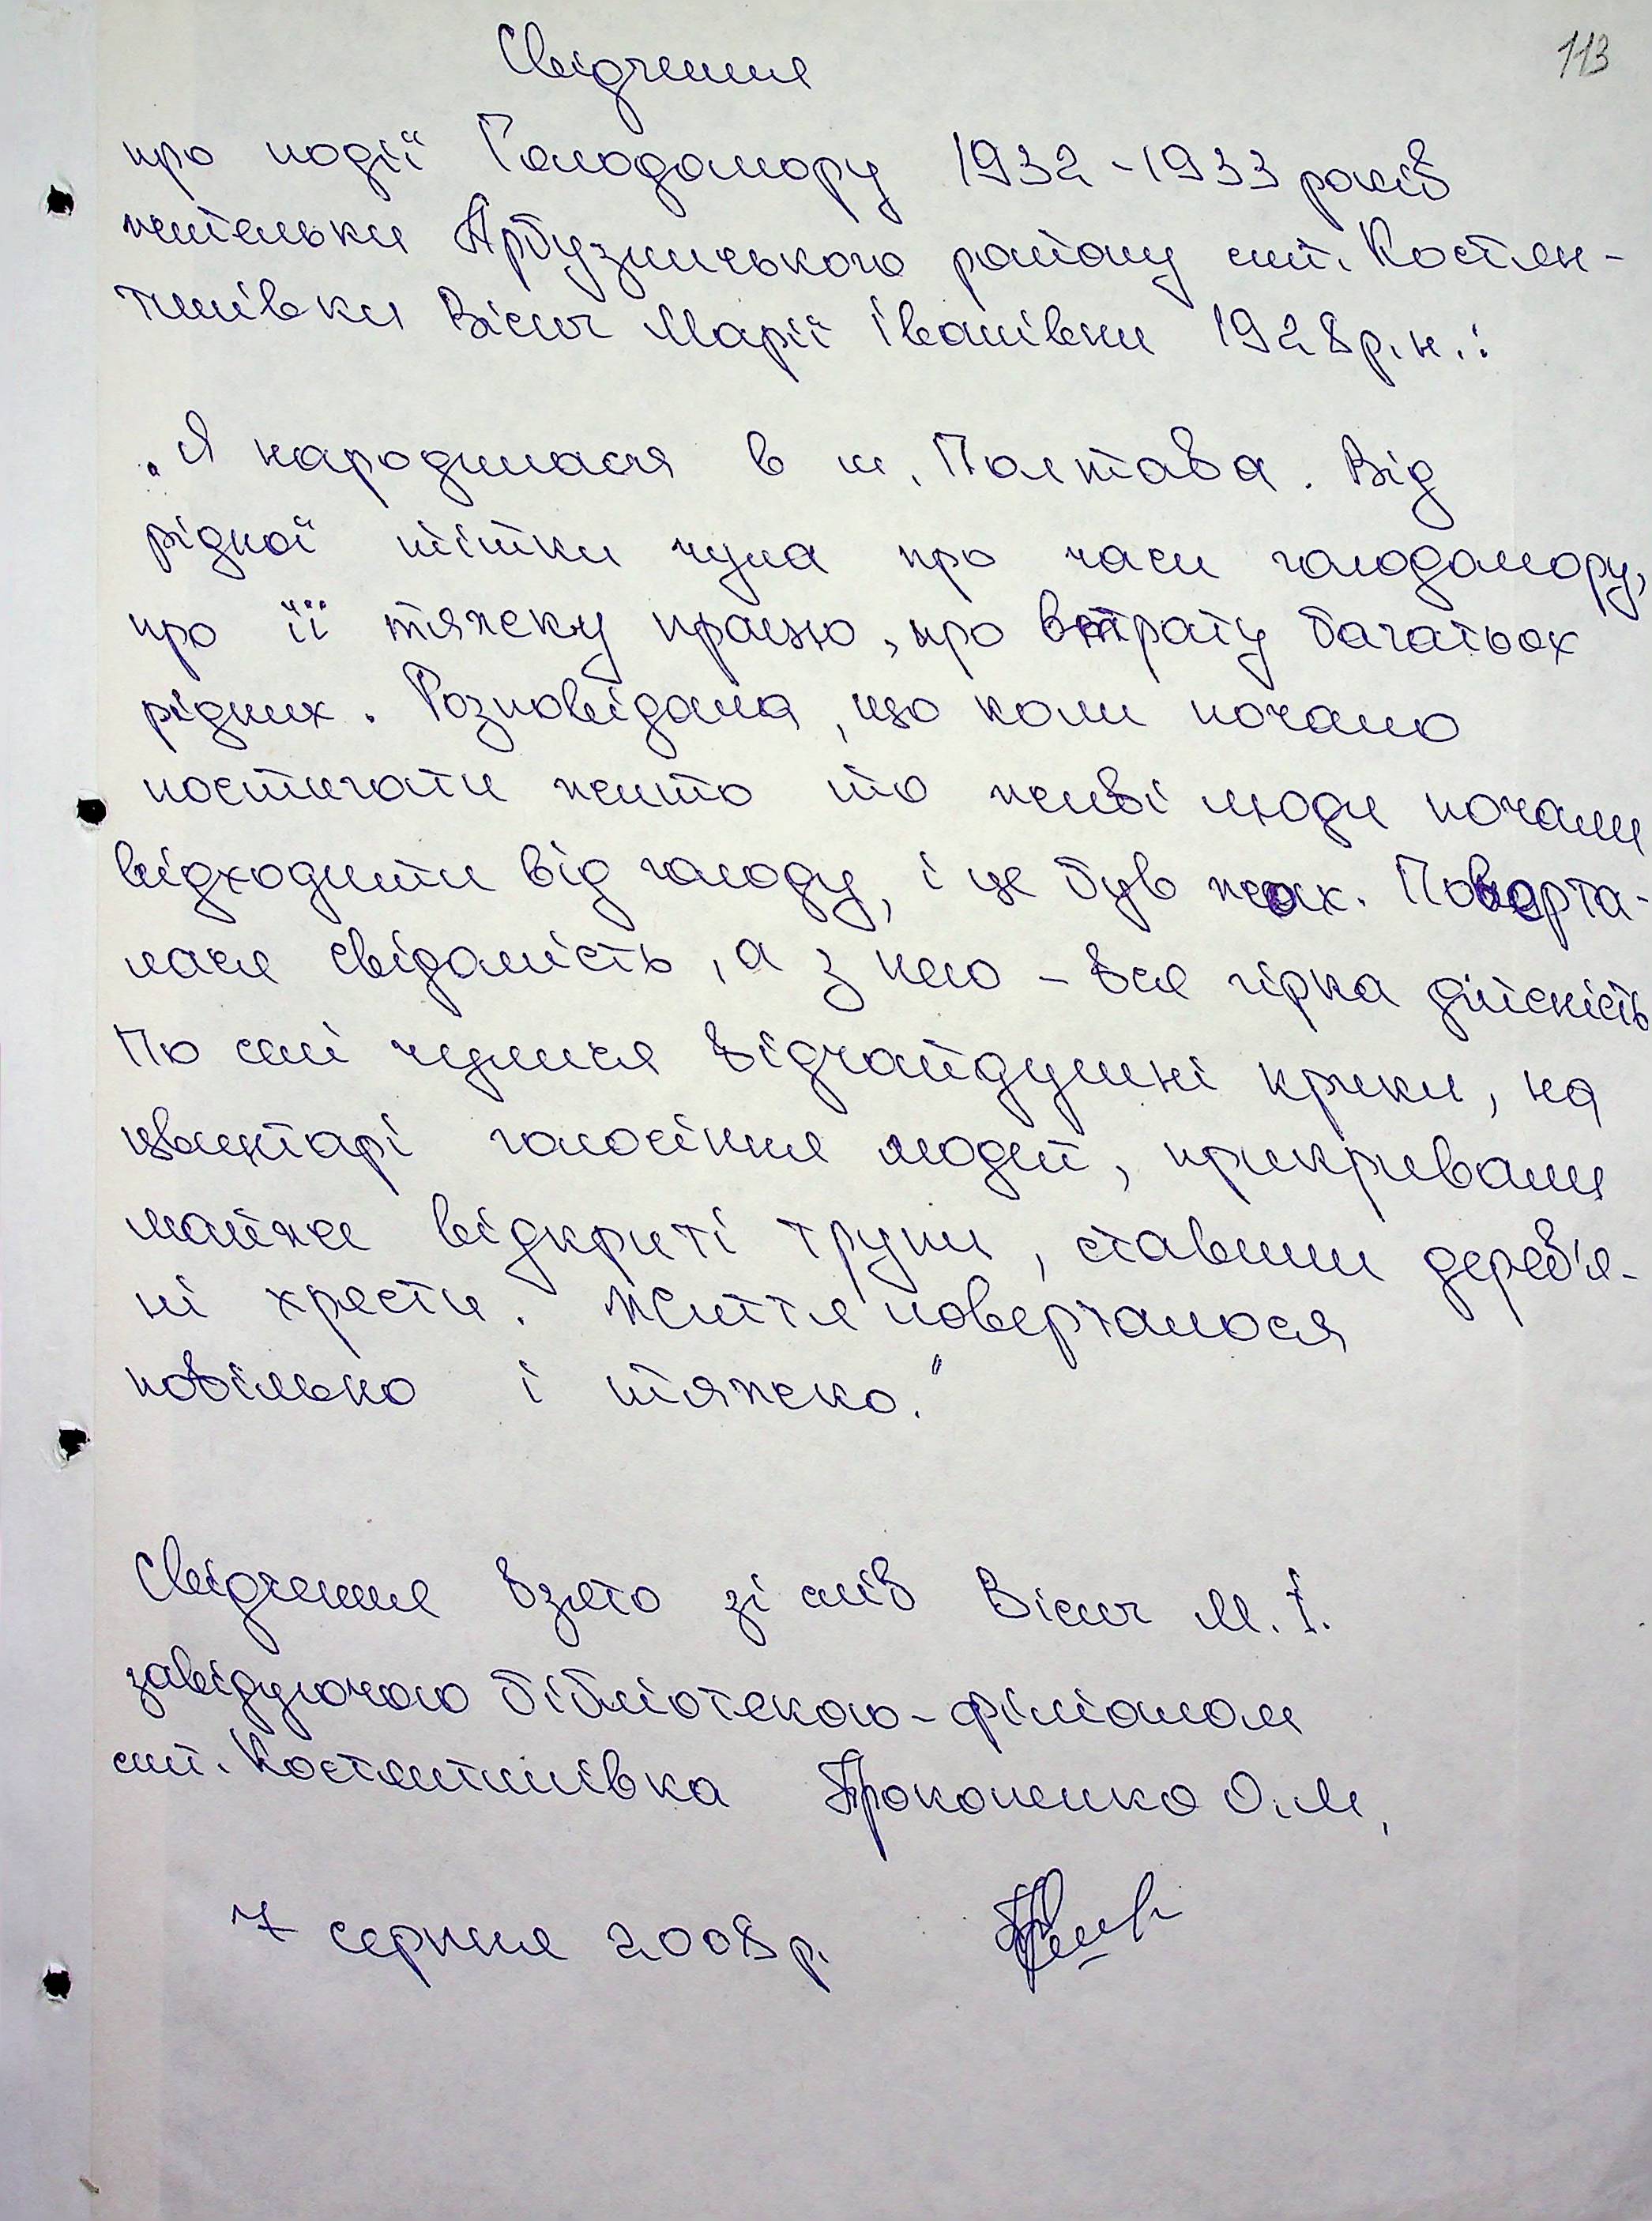 113
Свідчення
про події Голодомору 1932-1933 років
жительки Арбузинського району смт. Костян-
тинівки Вісич Марії Іванівни 1928р.н.:
„Я народилася в м. Полтава. Від
рідної тітки чула про часи голодомору,
про її тяжку працю, про втрату багатьох
рідних. Розповідала, що коли почало
постигати жито то живі люди почали
відходити від голоду, і це був жах. Поверта-
лася свідомість, а з нею - вся гірка дійсність
По селі чулися відчайдушні крики, на
цвинтарі голосіння людей, прикривали
майже відкриті трупи, ставили дерев'я-
ні хрести. Життя поверталося
повільно і тяжко."
Свідчення взято зі слів Вісич М.І.
завідуючою бібліотекою-філіалом
смт. Костянтинівка Прокопенко О.М.
7 серпня 2008р.